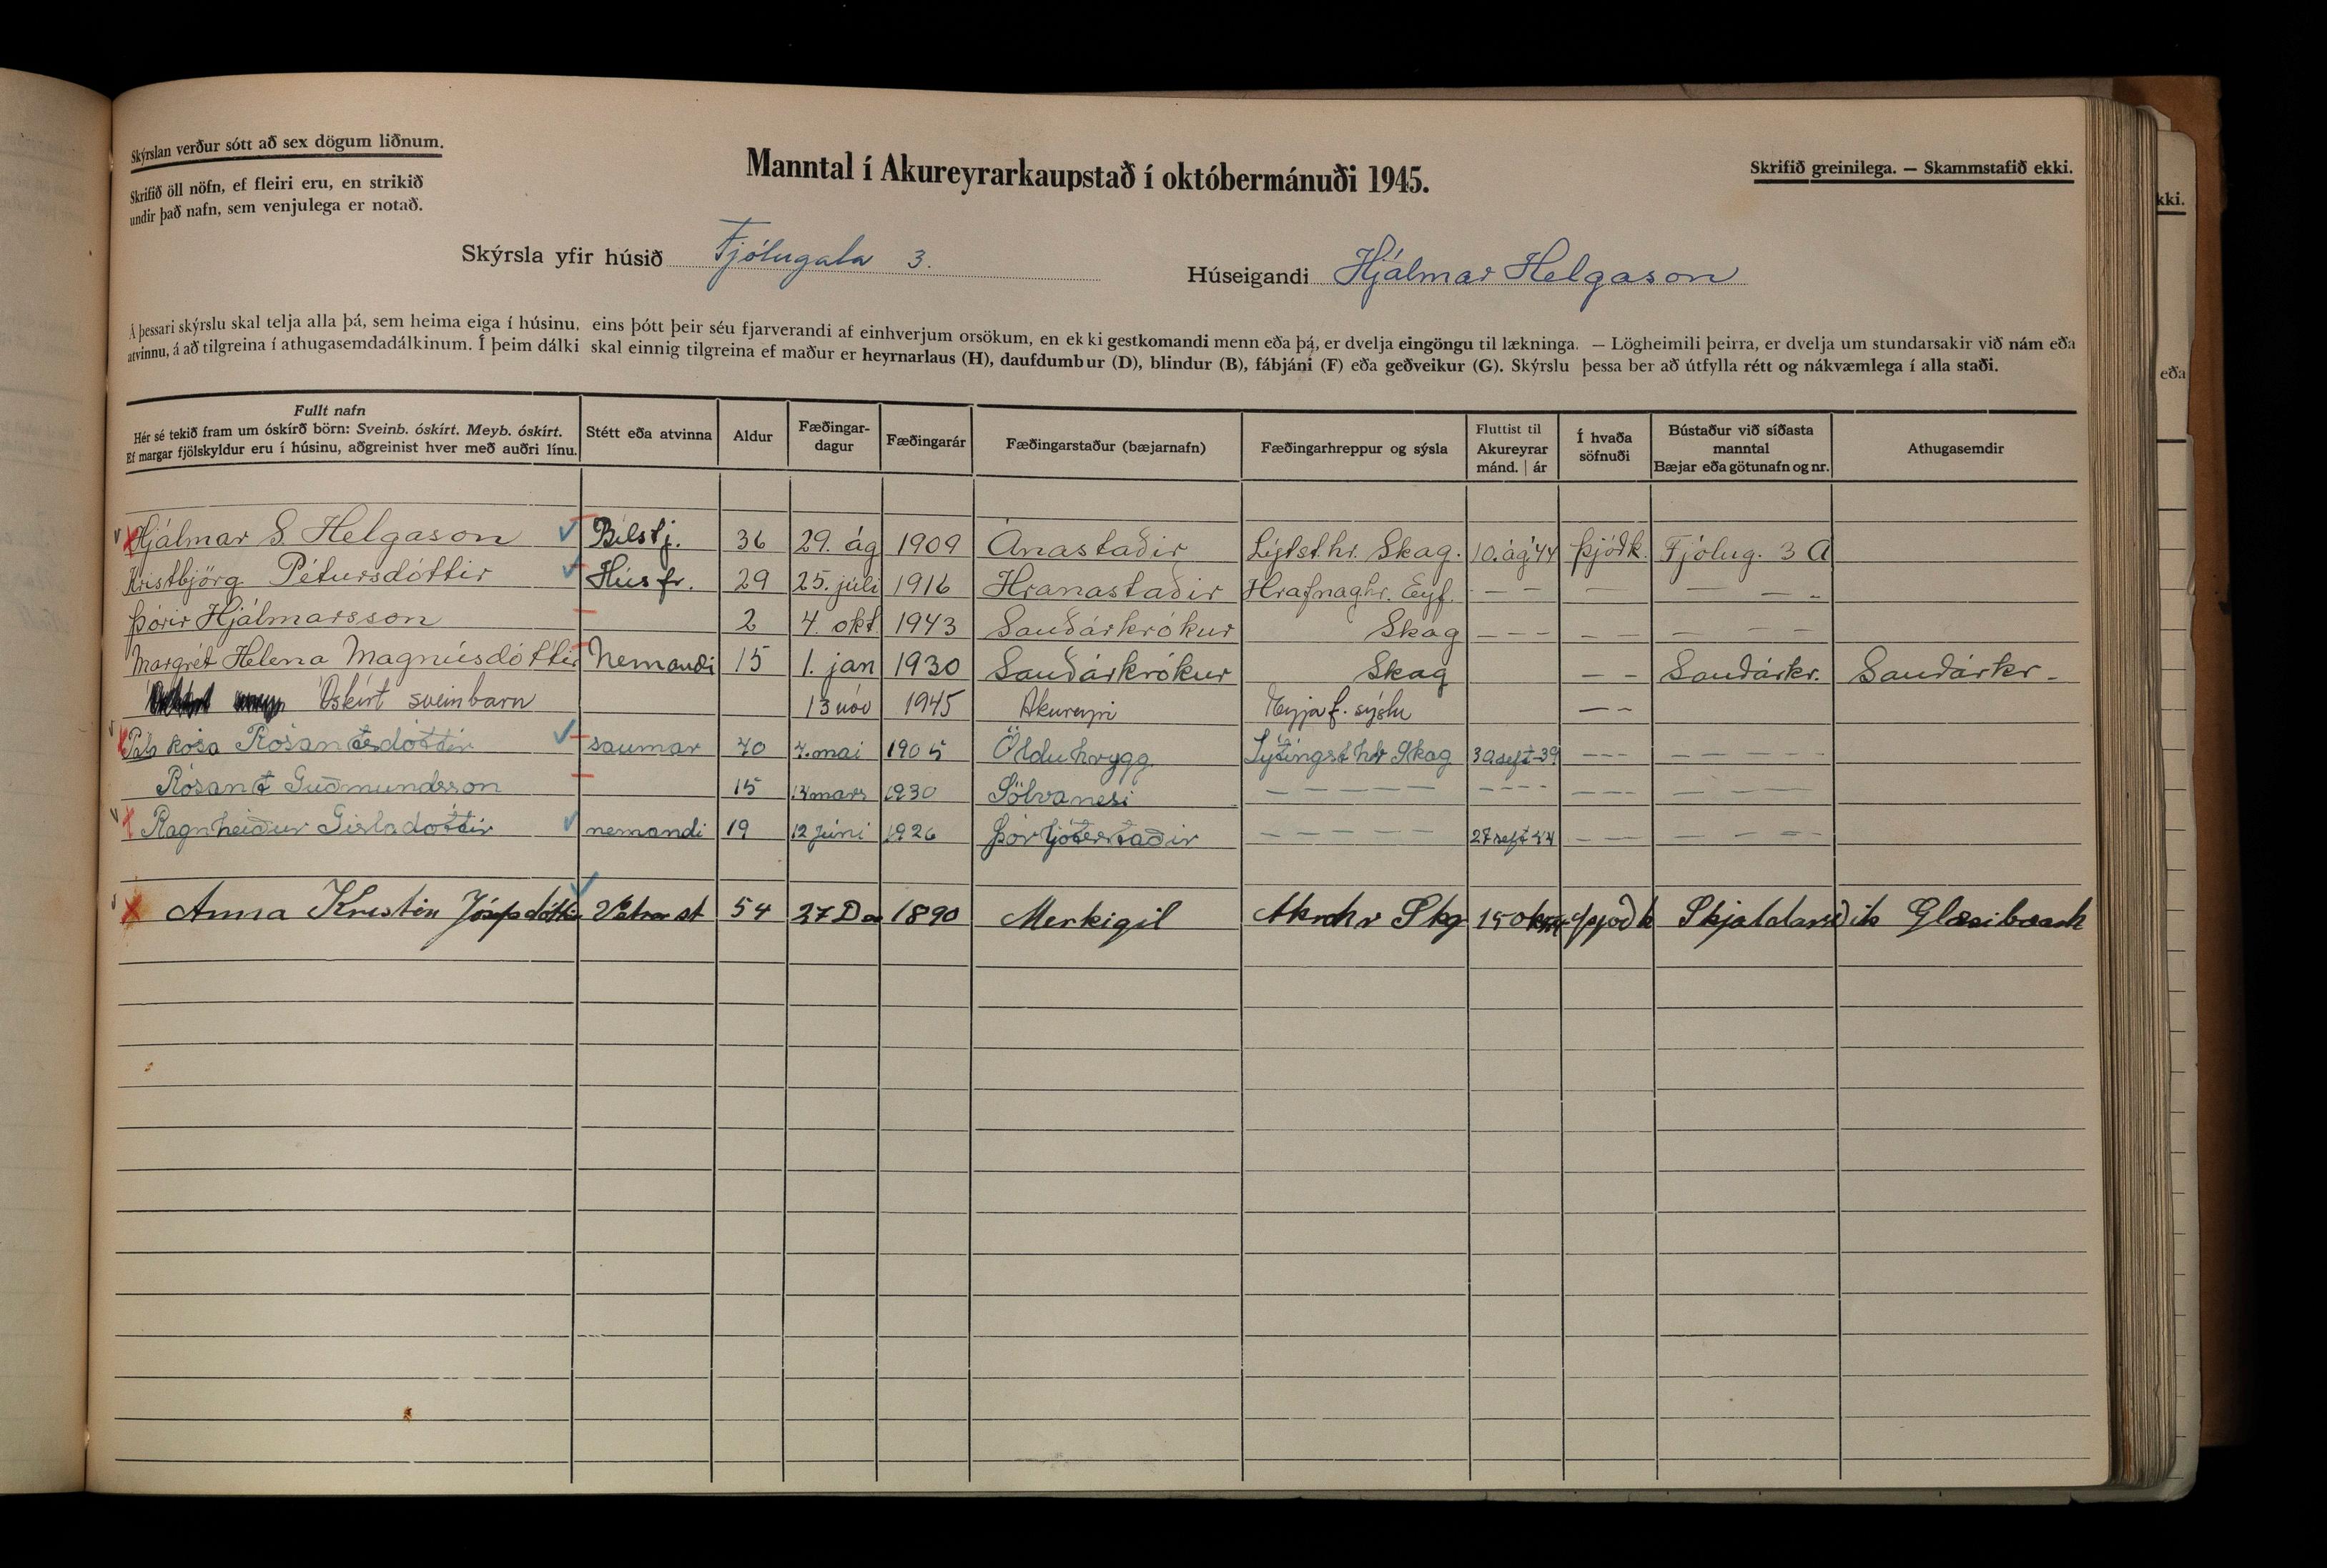 Skýrslan verður sótt að sex dögum liðnum.
Skrifið öll nöfn, ef fleiri eru, en strikið
undir það nafn, sem venjulega er notað.
Manntal í Akureyrarkaupstað í októbermánuði 1945.
Skrifið greinilega. — Skammstafið ekki.
kki.
Skýrsla yfir húsið Fjólugata 3.
Húseigandi Hjálmar Helgason
Á þessari skýrslu skal telja alla þá, sem heima eiga í húsinu, eins þótt þeir séu fjarverandi af einhverjum orsökum, en ekki gestkomandi menn eða þá, er dvelja eingöngu til lækninga. — Lögheimili þeirra, er dvelja um stundarsakir við nám eða
atvinnu, á að tilgreina í athugasemdadálkinum. Í þeim dálki skal einnig tilgreina ef maður er heyrnarlaus (H), daufdumbur (D), blindur (B), fábjáni (F) eða geðveikur (G). Skýrslu þessa ber að útfylla rétt og nákvæmlega í alla staði.
eða
Fullt nafn
Hér sé tekið fram um óskírð börn: Sveinb. óskírt. Meyb. óskírt.
Ef margar fjölskyldur eru í húsinu, aðgreinist hver með auðri línu.
Stétt eða atvinna
Aldur
Fæðingar-
dagur
Fæðingarár
Fæðingarstaður (bæjarnafn)
Fæðingarhreppur og sýsla
Fluttist til
Akureyrar
mánd. | ár
Í hvaða
söfnuði
Bústaður við síðasta
manntal
Bæjar eða götunafn og nr.
Athugasemdir
Hjálmar S. Helgason Bílstj. 36 29. ág 1909 Ánastaðir Lýtst.hr. Skag. 10. ág '44 Þjóðk. Fjólug. 3 A
Kristbjörg Pétursdóttir Húsfr. 29 25. júlí 1916 Hranastaðir Hrafnaghr. Eyf. – – — — — -
Þórir Hjálmarsson 2 4. okt 1943 Sauðárkrókur Skag – – – – – — — —
Margrét Helena Magnúsdóttir Nemandi 15 1. jan 1930 Sauðárkrókur Skag – – Sauðárkr. Sauðárkr.
Óskírt sveinbarn 13 nóv 1945 Akureyri Eyjaf. sýslu — –
Rósa Rósantsdóttir saumar 40 7. mai 1905 Ölduhrygg Lýtingst hr Skag 30 sept-39 – – – — — — —
Rósant Guðmundsson 15 14 mars 1930 Sölvanesi — — — — — – – – – – – – — — —
Ragnheiður Gísladóttir nemandi 19 12 júní 1926 Þorljótsstaðir — — — — — 27 sept 44 — — — — — —
Anna Kristín Jósepsdóttir 54 27 De 1890 Merkigil Akrahr Skg 15 þjóðk Skjaldarvík Glæsibæ